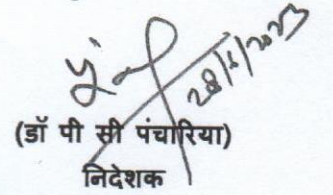 28/1/2023
(डॉ पी सी पंचारिया)
निदेशक